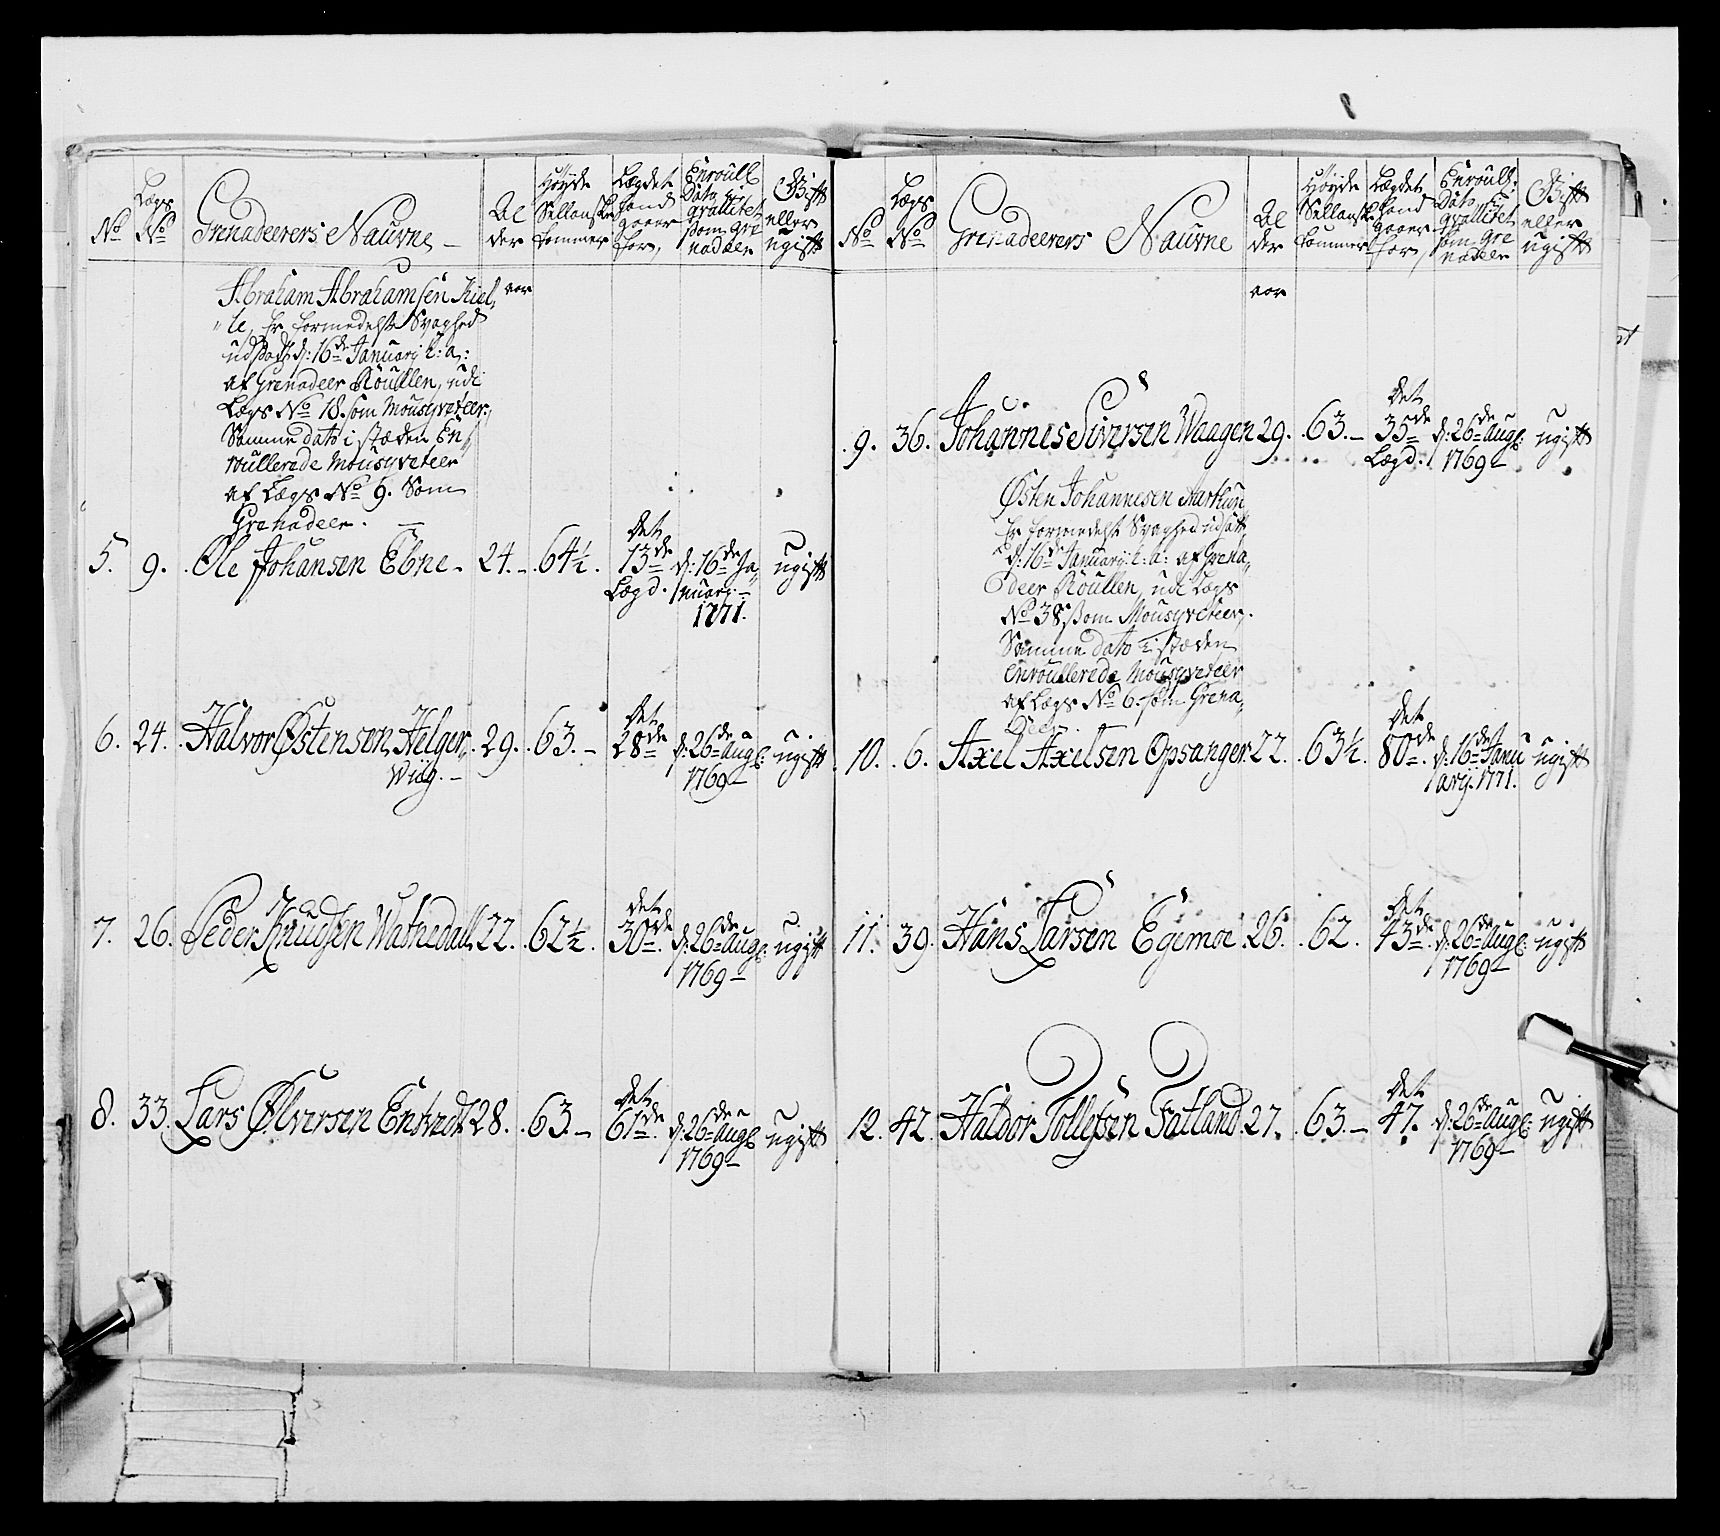 No
Lægs No
Grenadeerers Naurne
Al
der
Høyde
Sellands
tommer
Lægdet
hand
gaaer
for
Enroull
Dato i
qvallitet
som Gre
nadeer
Gift
eller
ugift
Abraham Abrahamsen Kiel,
le, Er formedelst Svaghed
udsadt d: 16de Januarij h: a:
af Grenadeer Roullen, udi
Lægs No 18. som Mousqveteer,
Samme dato i stæden En
roullerede Mousqveteer
af Lægs No 9. Som
Grenadeer.
aar
5. 9. Ole Johansen Ebne 24. 64½. Det 13de Lægd. d: 16de Ja
nuarij
1771. ugift
6. 24. Halvor Østensen Helger
Wiig. 29. 63. Det 28de d: 26de Aug:
1769 ugift
7. 26. Peder Knudsen Watnedall 22. 62½. Det 30de. d: 26de Aug:
1769 ugift
8. 33. Lars Ølversen 28. 63. Det 61de. d: 26de Aug:
1769 ugift
No
Lægs No
Grenadeerers Naurne
Al
der
Høyde
Sellands
tommer
Lægdet
hand
gaaer
for
Enroull:
Dato i
qvallitet
som Gre
nadeer
Gift
eller
ugift
aar
9. 36. Johannes Siversen Waagen 29. 63. Det 35de Lægd. d: 26de Aug:
1769 ugift
Østen Johannesen
Er formedelst Svaghed udsatt
d: 16de Januarij h: a: af Grena,
deer Roullen, udi Lægs
No 38 som Mousqveteer.
Samme dato i stæden
enroullerede Mousqveteer
af Lægs No 6. som Grena,
deer.
10. 6. Axel Axelsen Opsanger 22. 63½. Det 80de. d: 16de Janu
arij. 1771. ugift
11. 39. Hans Larsen Egemoe 26. 62. Det 43de. d: 26de Aug:
1769 ugift
12. 42. Haldor Tollefsen Fatland. 27. 63. Det 47. d: 26de Aug:
1769 ugift